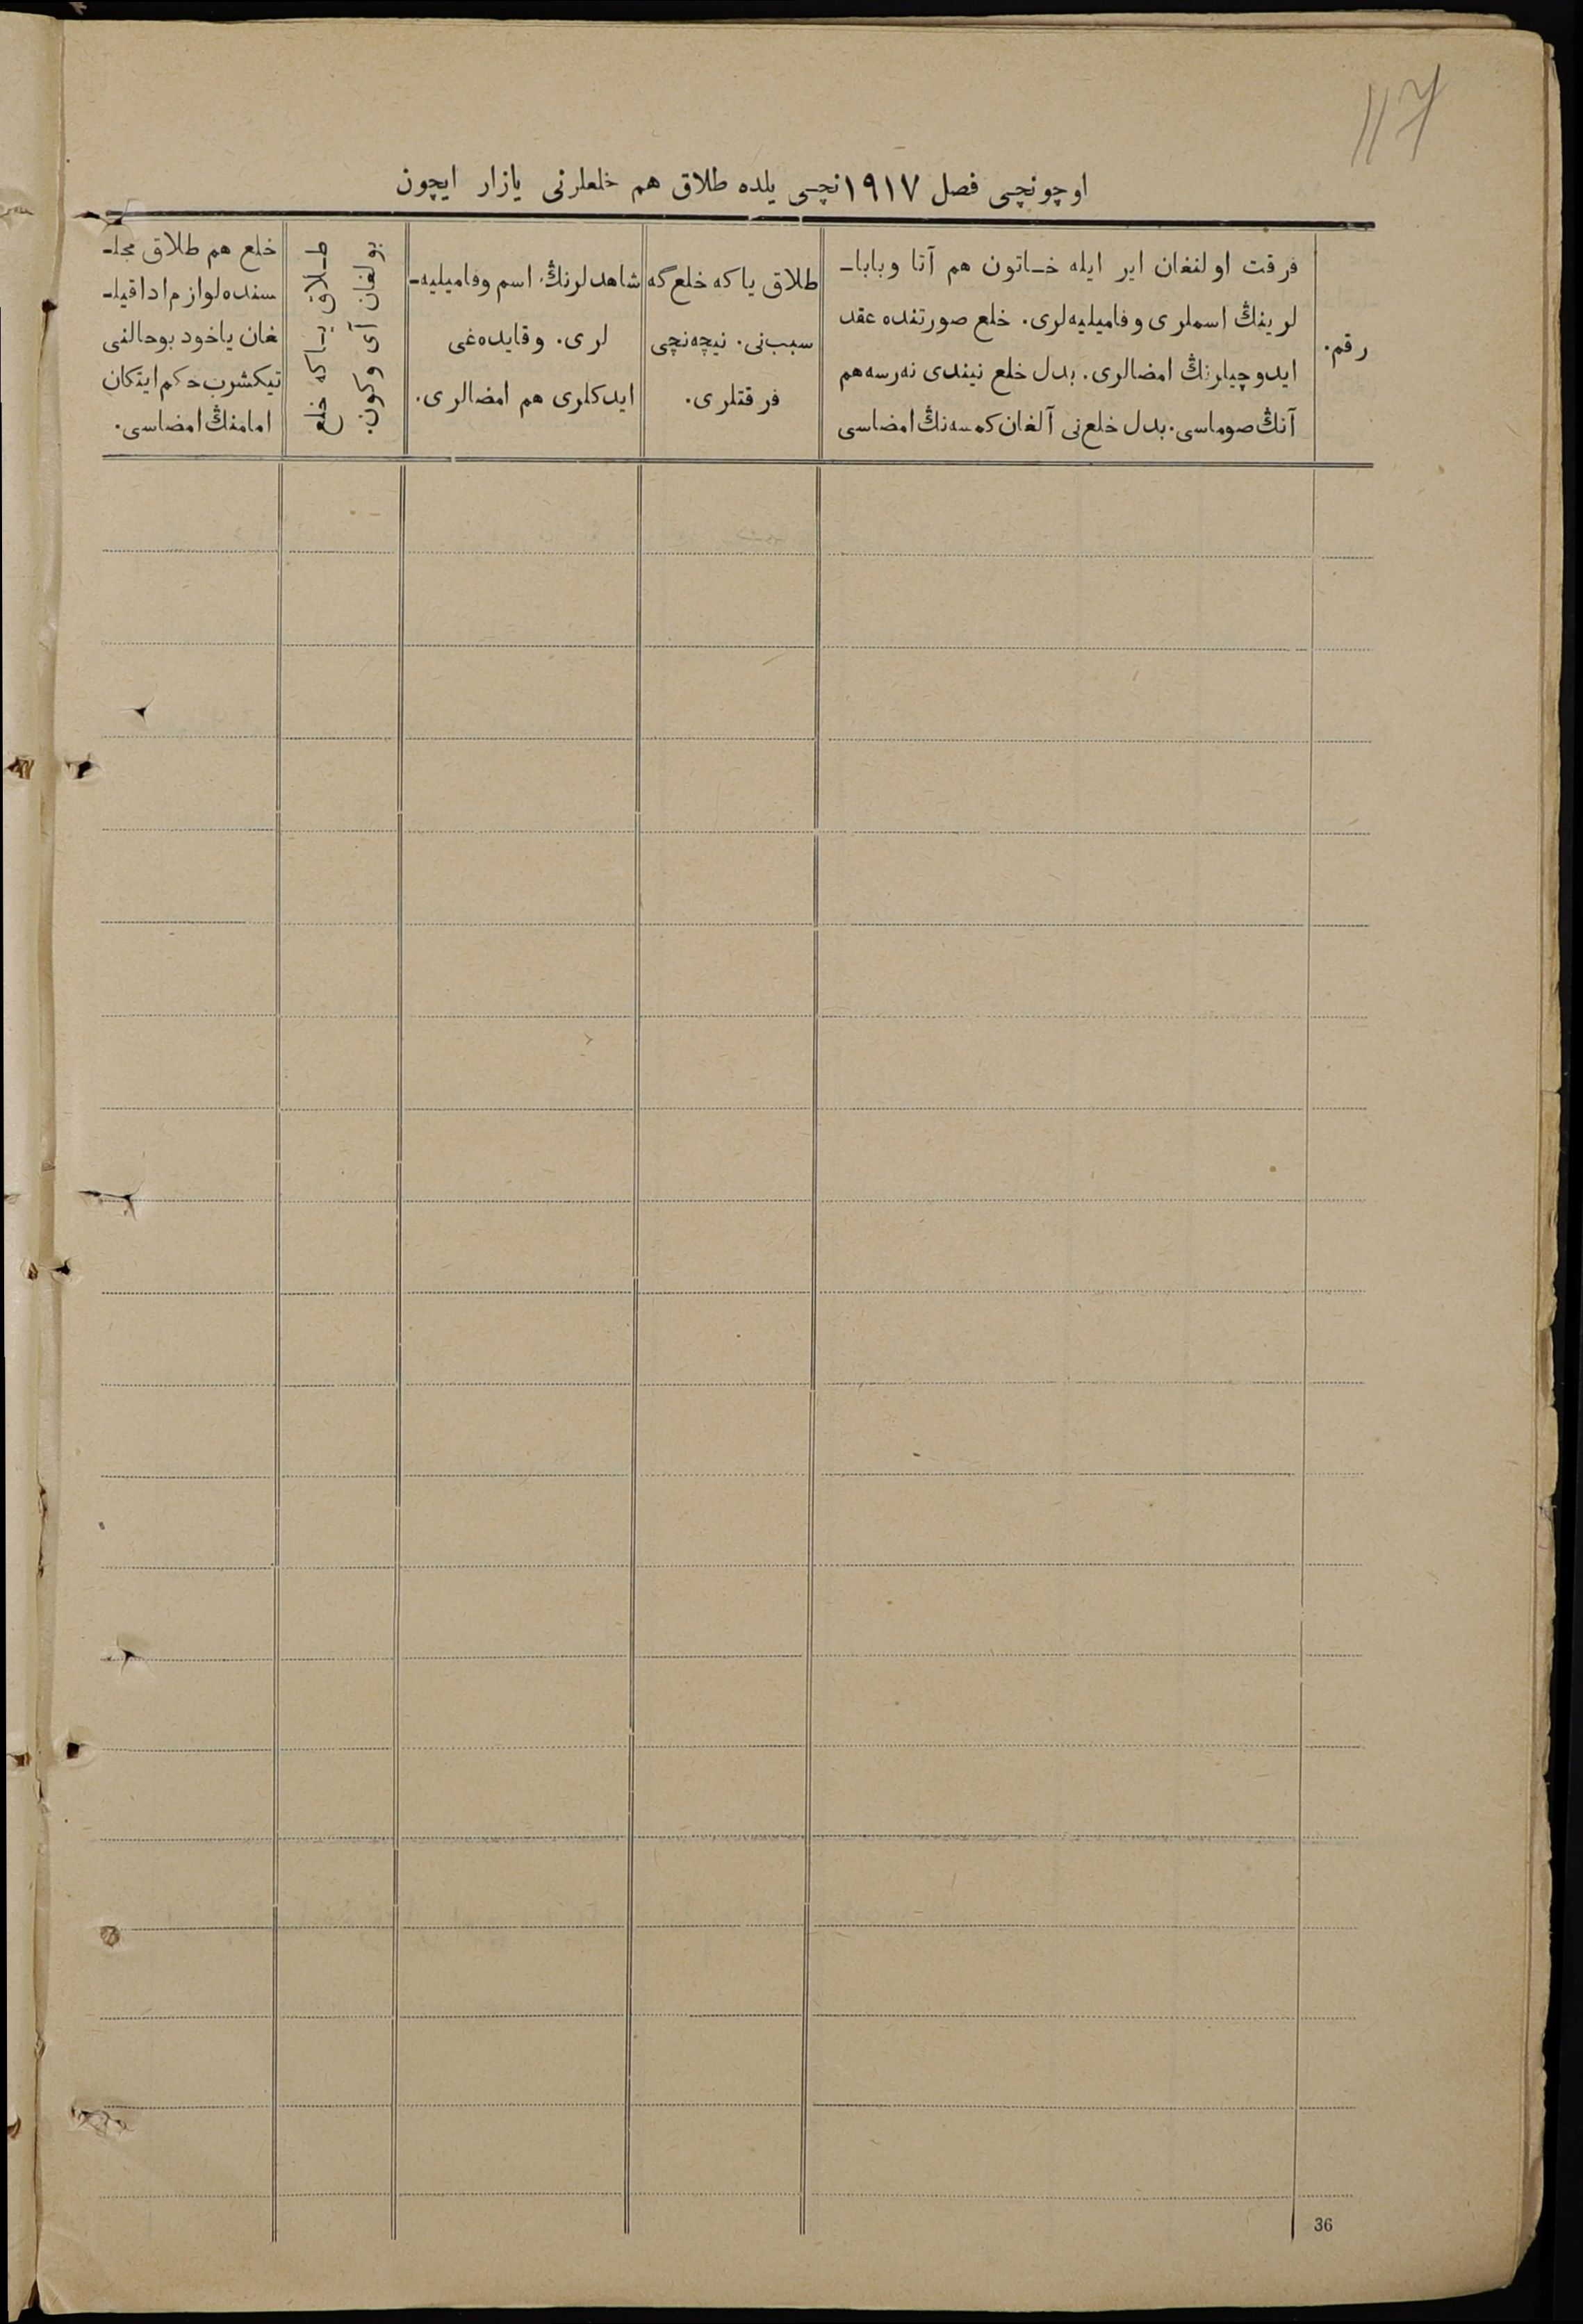 117
اوچونچی فصل ١٩١٧نچی یلده طلاق هم خلعلرنی یازار ایچون
رقم.
فرقت اولنغان ایر ایله خـاتون هم آتا وبابا-
لرینڭ اسملری وفامیلیه‌لری. خلع صورتنده عقد
ایدوچیلرنڭ امضالری. بدل خلع نیندی نه‌رسه‌هم
آنڭ صوماسی. بدل خلع‌نی آلغان کمسه‌نڭ امضاسی
طلاق یاکه خلع‌گه
سبب‌نی. نیچه‌نچی
فرقتلری.
شاهدلرنڭ اسم وفامیلیه-
لری. وقایده‌غی
ایدکلری هم امضالری.
طـلاق یـاکه خلع
بولغان آی وکون.
خلع هم طلاق مجلـ
سنده‌لوازم‌اداقیلـ
غان یاخود بوحالنی
تیکشرب حکم ایتکان
امامنڭ امضاسی.
36